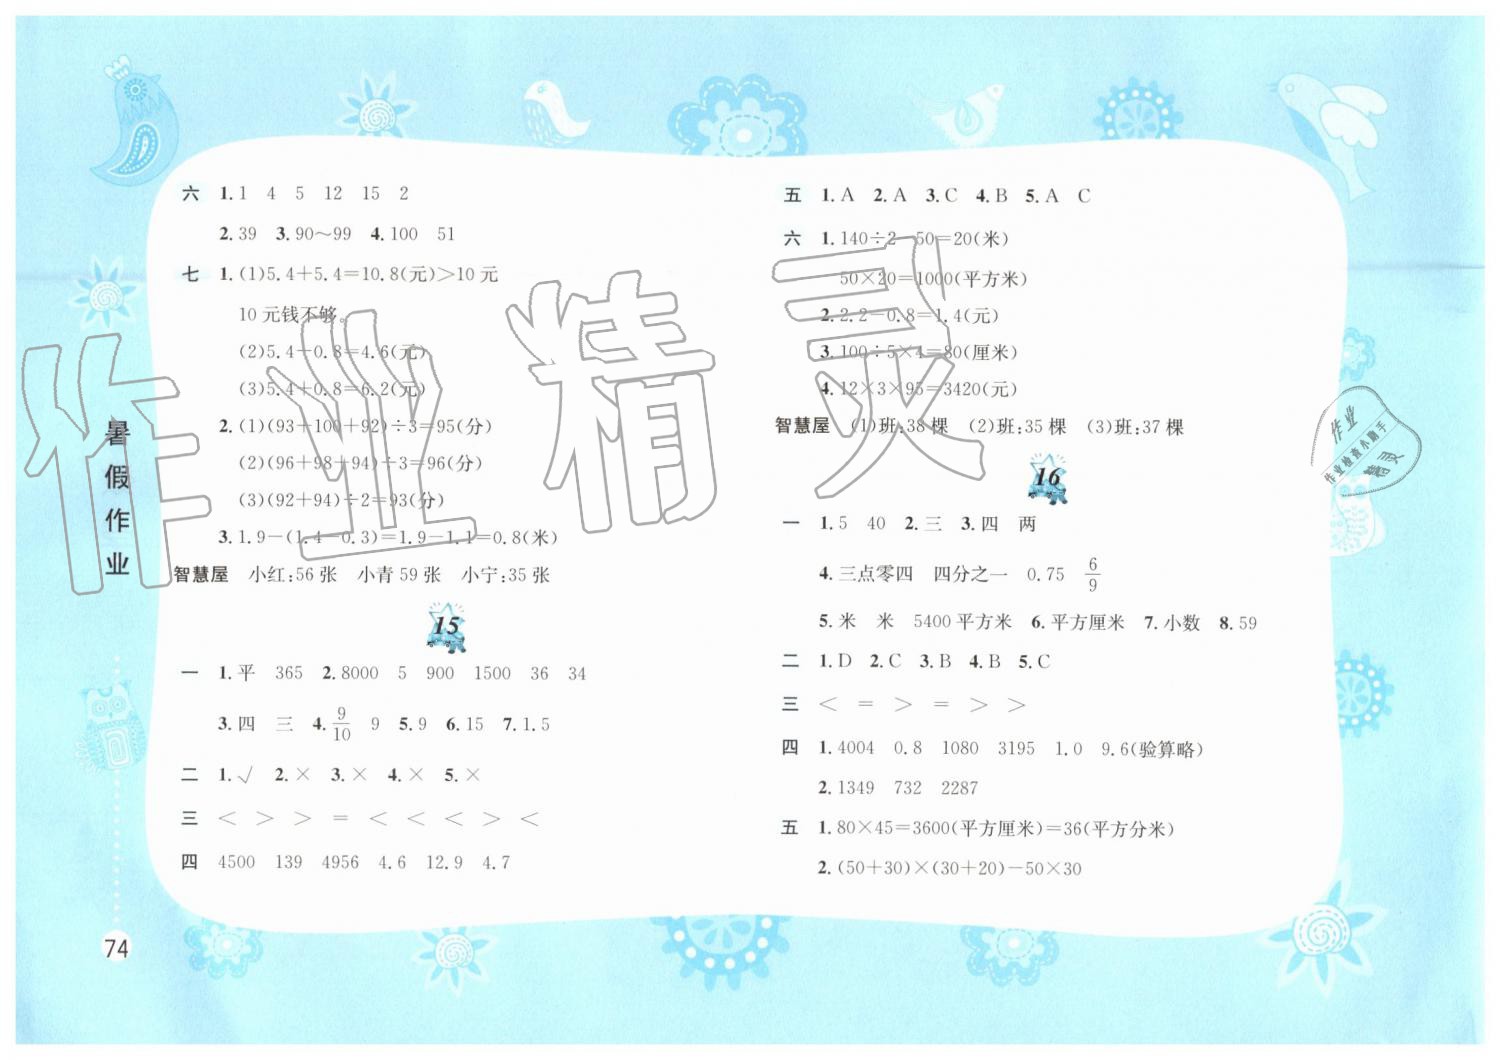 六 1.1 4 5 12 15 2
2.39 3.90～99 4.100 51
七 1.(1)5.4+5.4=10.8(元)>10元
10元钱不够。
(2)5.4-0.8=4.6(元)
(3)5.4+0.8=6.2(元)
2.(1)(93+100+92)÷3=95(分)
(2)(96+98+94)÷3=96(分)
(3)(92+94)÷2=93(分)
3.1.9-(1.4-0.3)=1.9-1.1=0.8(米)
智慧屋 小红:56张 小青59张 小宁:35张
15
一 1.平 365 2.8000 5 900 1500 36 34
3.四 三 4.9/10 9 5.9 6.15 7.1.5
二 1.√ 2.× 3.× 4.× 5.×
三 < > > = < < < > <
四 4500 139 4956 4.6 12.9 4.7
五 1.A 2.A 3.C 4.B 5.A C
六 1.140÷2-50=20(米)
50×20=1000(平方米)
2.2.2-0.8=1.4(元)
3.100÷5×4=80(厘米)
4.12×3×95=3420(元)
智慧屋 (1)班:38棵 (2)班:35棵 (3)班:37棵
16
一 1.5 40 2.三 3.四 两
4.三点零四 四分之一 0.75 6/9
5.米 米 5400平方米 6.平方厘米 7.小数 8.59
二 1.D 2.C 3.B 4.B 5.C
三 < = > = > >
四 1.4004 0.8 1080 3195 1.0 9.6(验算略)
2.1349 732 2287
五 1.80×45=3600(平方厘米)=36(平方分米)
2.(50+30)×(30+20)-50×30
暑假作业
74
作业精灵
作业
作业检查小助手
精灵